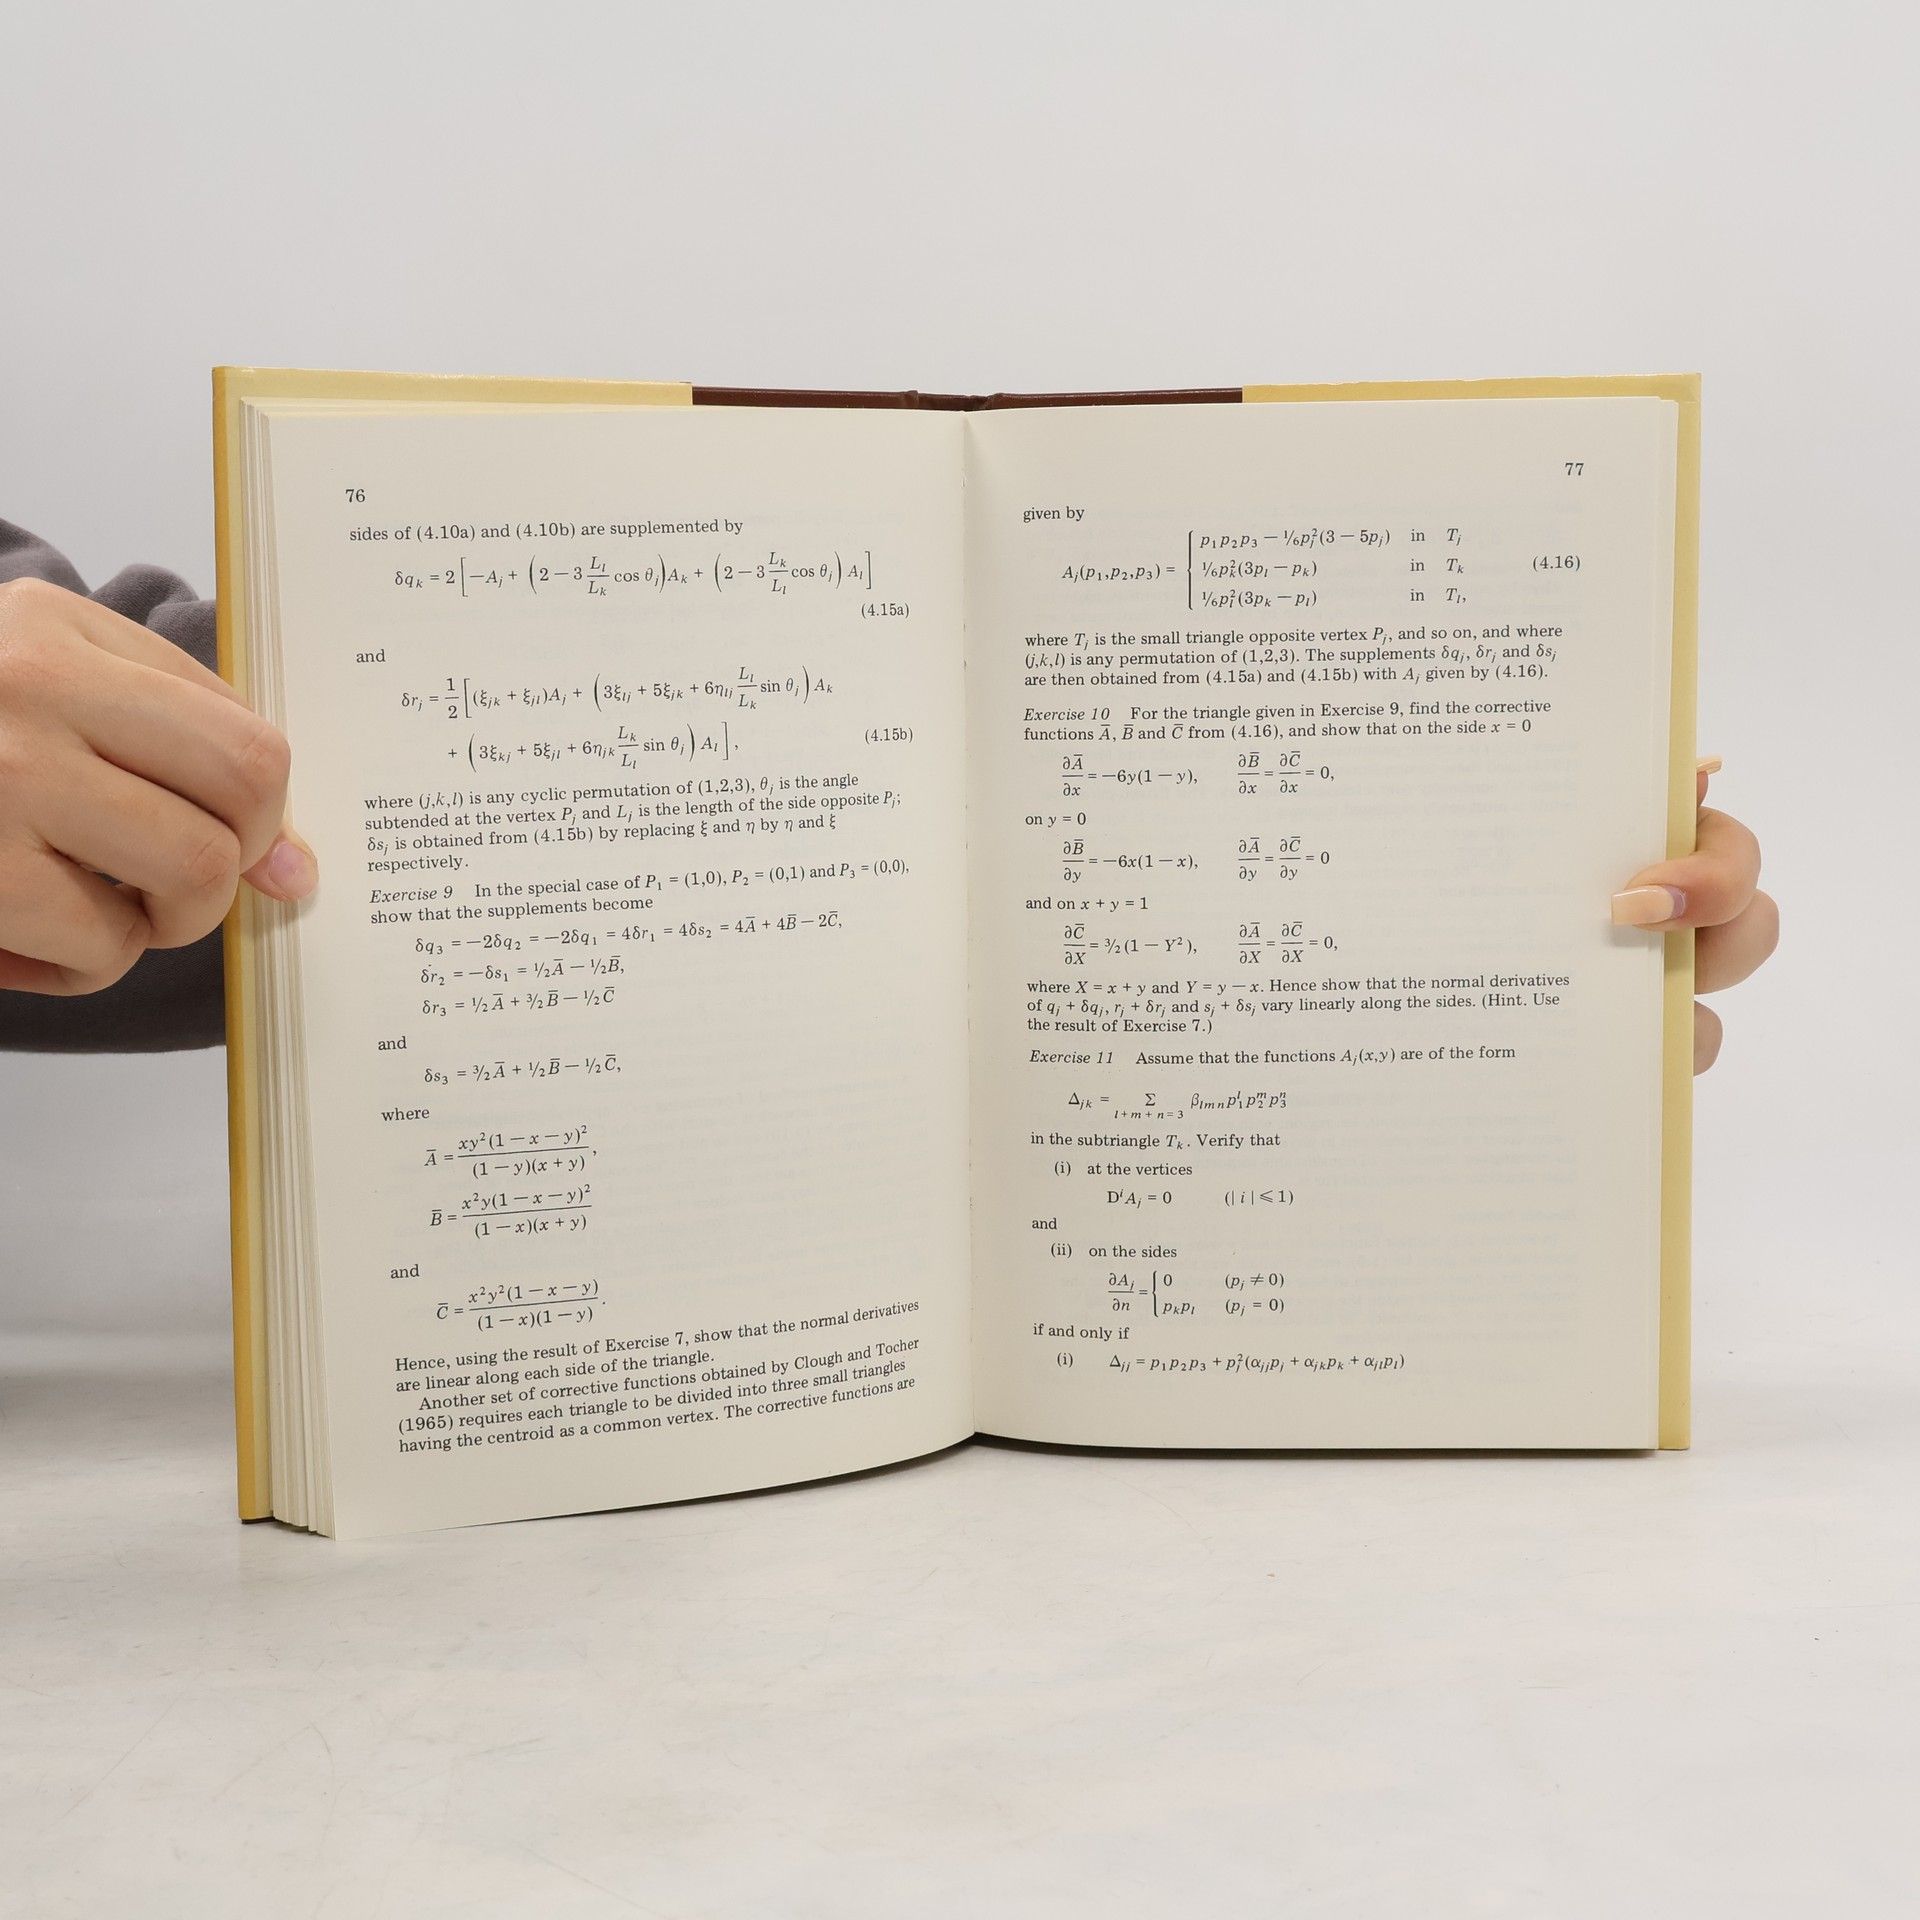 76
sides of (4.10a) and (4.10b) are supplemented by
δq_k = 2 [ −A_j + ( 2 − 3 L_l/L_k cos θ_j ) A_k + ( 2 − 3 L_k/L_l cos θ_j ) A_l ]
(4.15a)
and
δr_j = 1/2 [ (ξ_jk + ξ_jl)A_j + ( 3ξ_lj + 5ξ_jk + 6η_lj L_l/L_k sin θ_j ) A_k
+ ( 3ξ_kj + 5ξ_jl + 6η_jk L_k/L_l sin θ_j ) A_l ] , (4.15b)
where (j,k,l) is any cyclic permutation of (1,2,3), θ_j is the angle
subtended at the vertex P_j and L_j is the length of the side opposite P_j;
δs_j is obtained from (4.15b) by replacing ξ and η by η and ξ
respectively.
Exercise 9 In the special case of P₁ = (1,0), P₂ = (0,1) and P₃ = (0,0),
show that the supplements become
δq₃ = −2δq₂ = −2δq₁ = 4δr₁ = 4δs₂ = 4A̅ + 4B̅ − 2C̅,
δr₂ = −δs₁ = ½A̅ − ½B̅,
δr₃ = ½A̅ + 3/2B̅ − ½C̅
and
δs₃ = 3/2A̅ + ½B̅ − ½C̅,
where
A̅ = xy²(1 − x − y)² / (1 − y)(x + y) ,
B̅ = x²y(1 − x − y)² / (1 − x)(x + y)
and
C̅ = x²y²(1 − x − y) / (1 − x)(1 − y) .
Hence, using the result of Exercise 7, show that the normal derivatives
are linear along each side of the triangle.
Another set of corrective functions obtained by Clough and Tocher
(1965) requires each triangle to be divided into three small triangles
having the centroid as a common vertex. The corrective functions are
77
given by
A_j(p₁,p₂,p₃) = { p₁p₂p₃ − ⅙p_j²(3 − 5p_j) in T_j
⅙p_k²(3p_l − p_k) in T_k (4.16)
⅙p_l²(3p_k − p_l) in T_l,
where T_j is the small triangle opposite vertex P_j, and so on, and where
(j,k,l) is any permutation of (1,2,3). The supplements δq_j, δr_j and δs_j
are then obtained from (4.15a) and (4.15b) with A_j given by (4.16).
Exercise 10 For the triangle given in Exercise 9, find the corrective
functions A̅, B̅ and C̅ from (4.16), and show that on the side x = 0
∂A̅/∂x = −6y(1 − y), ∂B̅/∂x = ∂C̅/∂x = 0,
on y = 0
∂B̅/∂y = −6x(1 − x), ∂A̅/∂y = ∂C̅/∂y = 0
and on x + y = 1
∂C̅/∂X = 3/2(1 − Y²), ∂A̅/∂X = ∂C̅/∂X = 0,
where X = x + y and Y = y − x. Hence show that the normal derivatives
of q_j + δq_j, r_j + δr_j and s_j + δs_j vary linearly along the sides. (Hint. Use
the result of Exercise 7.)
Exercise 11 Assume that the functions A_j(x,y) are of the form
Δ_jk = Σ_{l + m + n = 3} β_lmn p₁^l p₂^m p₃^n
in the subtriangle T_k. Verify that
(i) at the vertices
D^i A_j = 0 (| i | ⩽ 1)
and
(ii) on the sides
∂A_j/∂n = { 0 (p_j ≠ 0)
p_k p_l (p_j = 0)
if and only if
(i) Δ_jj = p₁p₂p₃ + p_j²(α_jj p_j + α_jk p_k + α_jl p_l)